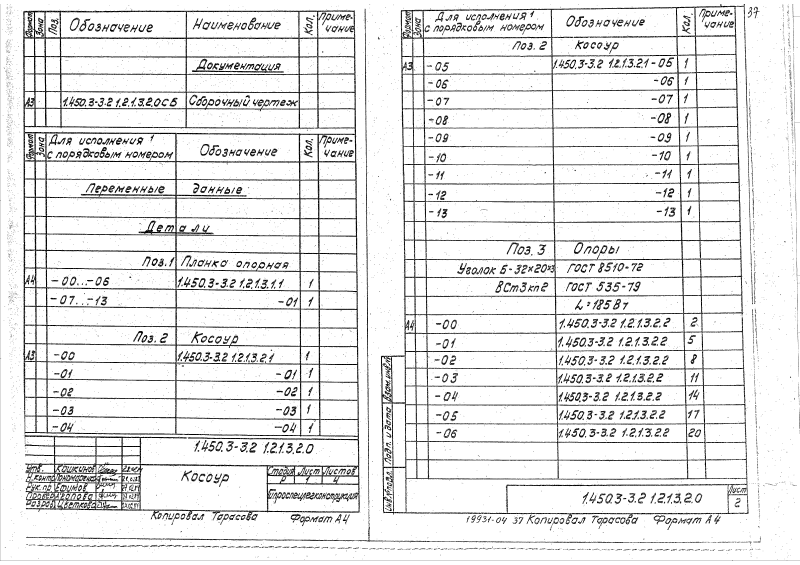 Формат Зона Поз. Обозначение Наименование Кол. Приме-
чание
Документация
А3 1.450.3-3.2 1.2.1.3.2.0СБ Сборочный чертеж
Формат Зона Для исполнения ¹ Обозначение Кол. Приме-
с порядковым номером чание
Переменные данные
Детали
Поз.1 Планка опорная
А4 -00...-06 1.450.3-3.2 1.2.1.3.1.1 1
-07...-13 -01 1
Поз. 2 Косоур
А3 -00 1.450.3-3.2 1.2.1.3.2.1 1
-01 -01 1
-02 -02 1
-03 -03 1
-04 -04 1
1.450.3-3.2 1.2.1.3.2.0
Утв. Кашкинов
Н.контр Пономарева
Рук.пр Ефимов
Провер.
Разраб. Цветкова
Косоур
Стадия Лист Листов
Р 1 4
Копировал Тарасова Формат А4
37
Формат Зона Для исполнения ¹ Обозначение Кол. Приме-
с порядковым номером чание
Поз. 2 Косоур
А3 -05 1.450.3-3.2 1.2.1.3.2.1-05 1
-06 -06 1
-07 -07 1
-08 -08 1
-09 -09 1
-10 -10 1
-11 -11 1
-12 -12 1
-13 -13 1
Поз. 3 Опоры
Уголок Б-32×20×3 ГОСТ 8510-72
ВСт3кп2 ГОСТ 535-79
А4 -00 1.450.3-3.2 1.2.1.3.2.2 2
-01 1.450.3-3.2 1.2.1.3.2.2 5
-02 1.450.3-3.2 1.2.1.3.2.2 8
-03 1.450.3-3.2 1.2.1.3.2.2 11
-04 1.450.3-3.2 1.2.1.3.2.2 14
-05 1.450.3-3.2 1.2.1.3.2.2 17
-06 1.450.3-3.2 1.2.1.3.2.2 20
Инв.№подл. Подп. и дата Взам.инв.№
1.450.3-3.2 1.2.1.3.2.0
Лист
2
19931-04 37 Копировал Тарасова Формат А4